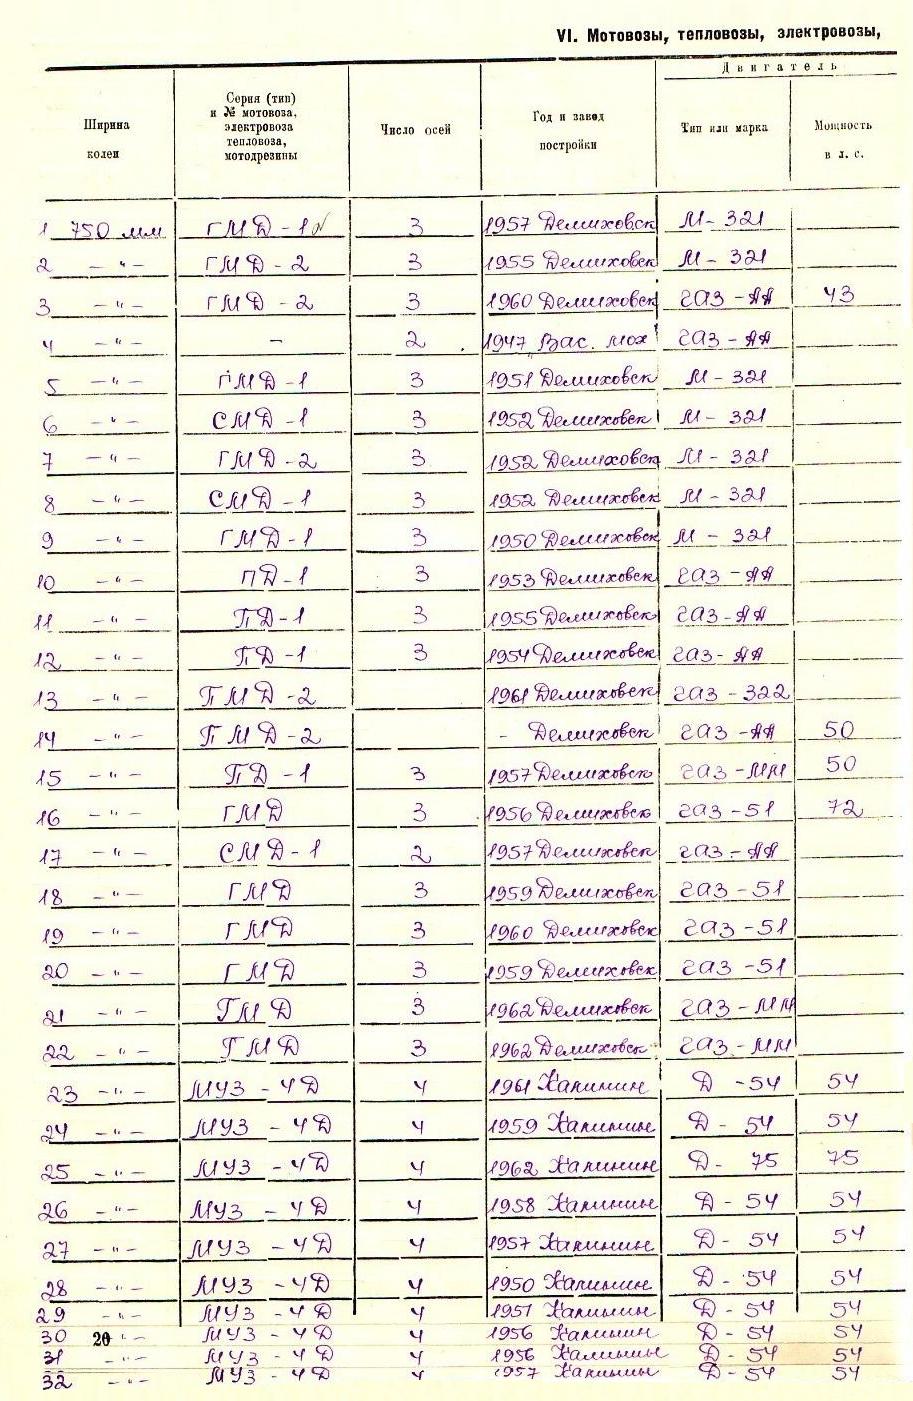 VI. Мотовозы, тепловозы, электровозы,
Ширина колеи | Серия (тип) и № мотовоза, электровоза тепловоза, мотодрезины | Число осей | Год и завод постройки | Двигатель Тип или марка | Мощность в л. с.
1 750 мм ГМД-1 3 1957 Демиховск М-321
2 – " – ГМД-2 3 1955 Демиховск М-321
3 – " – ГМД-2 3 1960 Демиховск ГАЗ-АА 43
4 – " – – 2 1947 Вас. мох ГАЗ-АА
5 – " – ГМД-1 3 1951 Демиховск М-321
6 – " – СМД-1 3 1952 Демиховск М-321
7 – " – ГМД-2 3 1952 Демиховск М-321
8 – " – СМД-1 3 1952 Демиховск М-321
9 – " – ГМД-1 3 1950 Демиховск М-321
10 – " – ПД-1 3 1953 Демиховск ГАЗ-АА
11 – " – ПД-1 3 1955 Демиховск ГАЗ-АА
12 – " – ПД-1 3 1954 Демиховск ГАЗ-АА
13 – " – ПМД-2 1961 Демиховск ГАЗ-322
14 – " – ПМД-2 – Демиховск ГАЗ-АА 50
15 – " – ПД-1 3 1957 Демиховск ГАЗ-ММ 50
16 – " – ГМД 3 1956 Демиховск ГАЗ-51 72
17 – " – СМД-1 2 1957 Демиховск ГАЗ-АА
18 – " – ГМД 3 1959 Демиховск ГАЗ-51
19 – " – ГМД 3 1960 Демиховск ГАЗ-51
20 – " – ГМД 3 1959 Демиховск ГАЗ-51
21 – " – ГМД 3 1962 Демиховск ГАЗ-ММ
22 – " – ГМД 3 1962 Демиховск ГАЗ-ММ
23 – " – МУЗ-4Д 4 1961 Калинин Д-54 54
24 – " – МУЗ-4Д 4 1959 Калинин Д-54 54
25 – " – МУЗ-4Д 4 1962 Калинин Д-75 75
26 – " – МУЗ-4Д 4 1958 Калинин Д-54 54
27 – " – МУЗ-4Д 4 1957 Калинин Д-54 54
28 – " – МУЗ-4Д 4 1950 Калинин Д-54 54
29 – " – МУЗ-4Д 4 1951 Калинин Д-54 54
30 20 – " – МУЗ-4Д 4 1956 Калинин Д-54 54
31 – " – МУЗ-4Д 4 1956 Калинин Д-54 54
32 – " – МУЗ-4Д 4 1957 Калинин Д-54 54